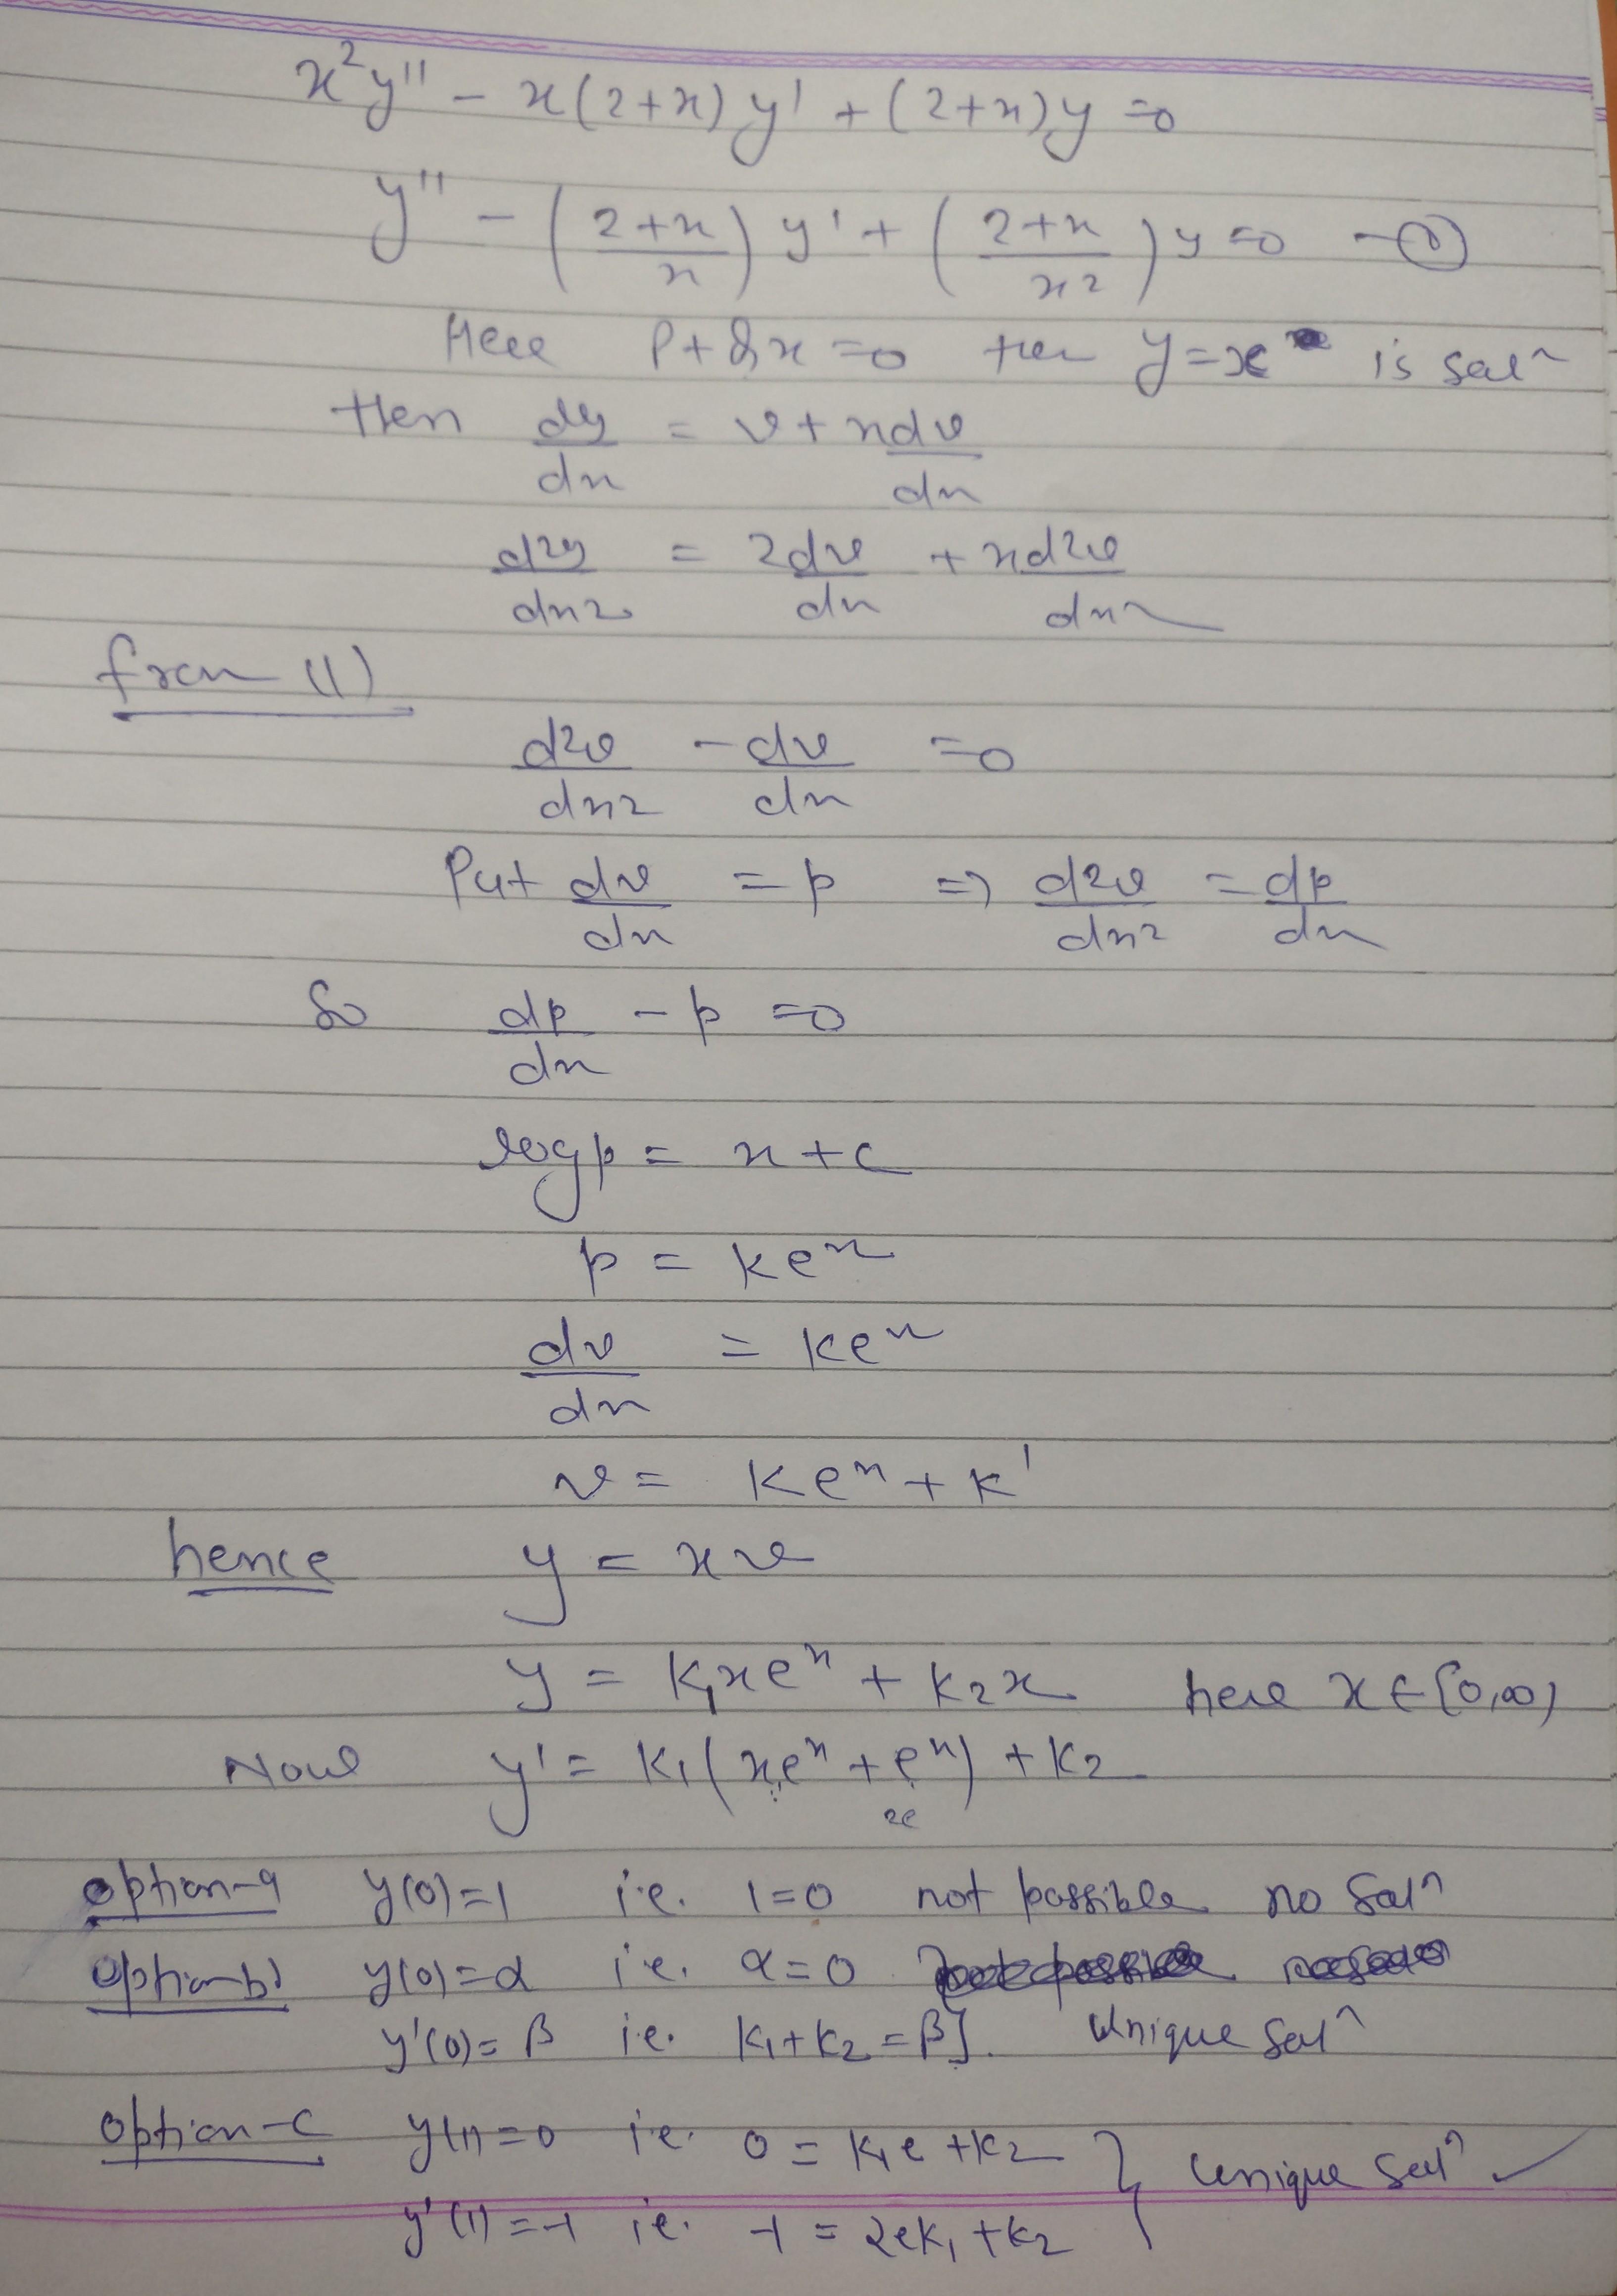 x²y'' - x(2+x)y' + (2+x)y = 0
y'' - ((2+x)/x) y' + ((2+x)/x²) y = 0 - ①
Here P + Qx = 0 then y = x is solⁿ
then dy/dx = v + x dv/dx
d²y/dx² = 2dv/dx + x d²v/dx²
from (1)
d²v/dx² - dv/dx = 0
Put dv/dx = p ⇒ d²v/dx² = dp/dx
So dp/dx - p = 0
log p = x + c
p = ke^x
dv/dx = ke^x
v = ke^x + k'
hence y = xv
y = k₁xe^x + k₂x here x ∈ [0,∞)
Now y' = k₁(xe^x + e^x) + k₂
2e
option-a y(0)=1 i.e. 1=0 not possible no solⁿ
option-b) y(0)=α i.e. α=0
y'(0)=β i.e. k₁+k₂=β}. Unique solⁿ
option-c y(1)=0 i.e. 0 = k₁e + k₂ } Unique solⁿ ✓
y'(1)=-1 i.e. -1 = 2ek₁ + k₂